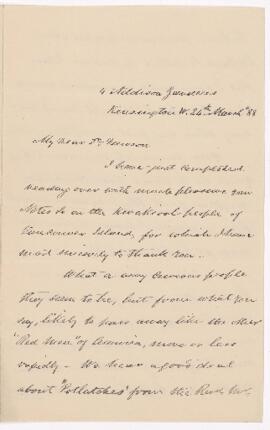 4 Addison Gardens
Kensington W. 24th March '88
My dear Dr. Dawson
I have just completed
reading over with much pleasure your
Notes &c on the Kwakiool people of
Vancouver Island, for which I have
most sincerely to thank you.
What a very curious people
they seem to be, but from what you
say, likely to pass away like the other
"Red Men" of America, more or less
rapidly - We hear a good deal
about "Potlatches" from the Revd Mr.